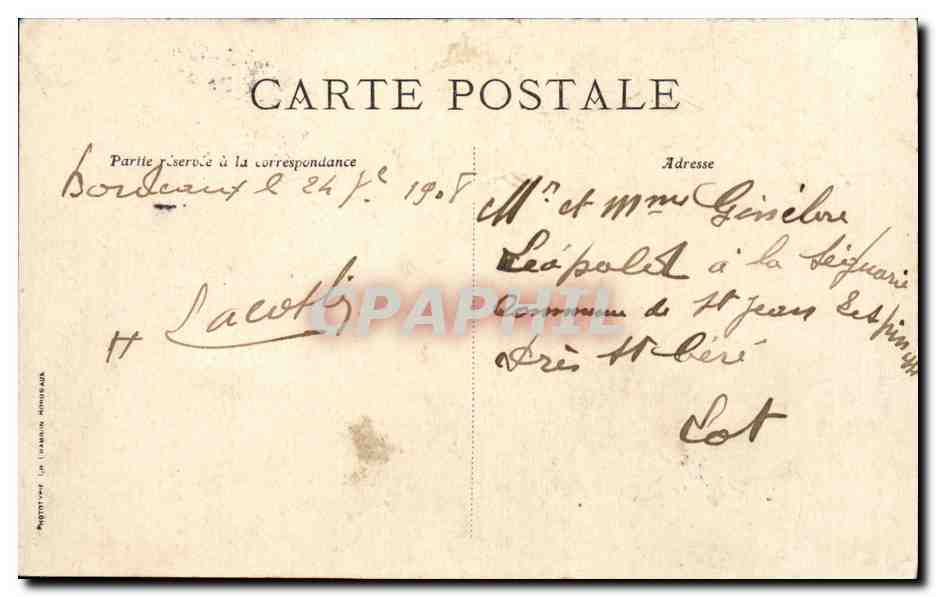 CARTE POSTALE
Partie réservée à la correspondance
Adresse
Bordeaux le 24 1908
Mr et Mme Ginèbre
Léopold à la Séguarie
commune de St Jean Lespinasse
près St Céré
Lot
H Lacoste
CPAPHIL
PHOTOTYPIE CHAMBON BORDEAUX